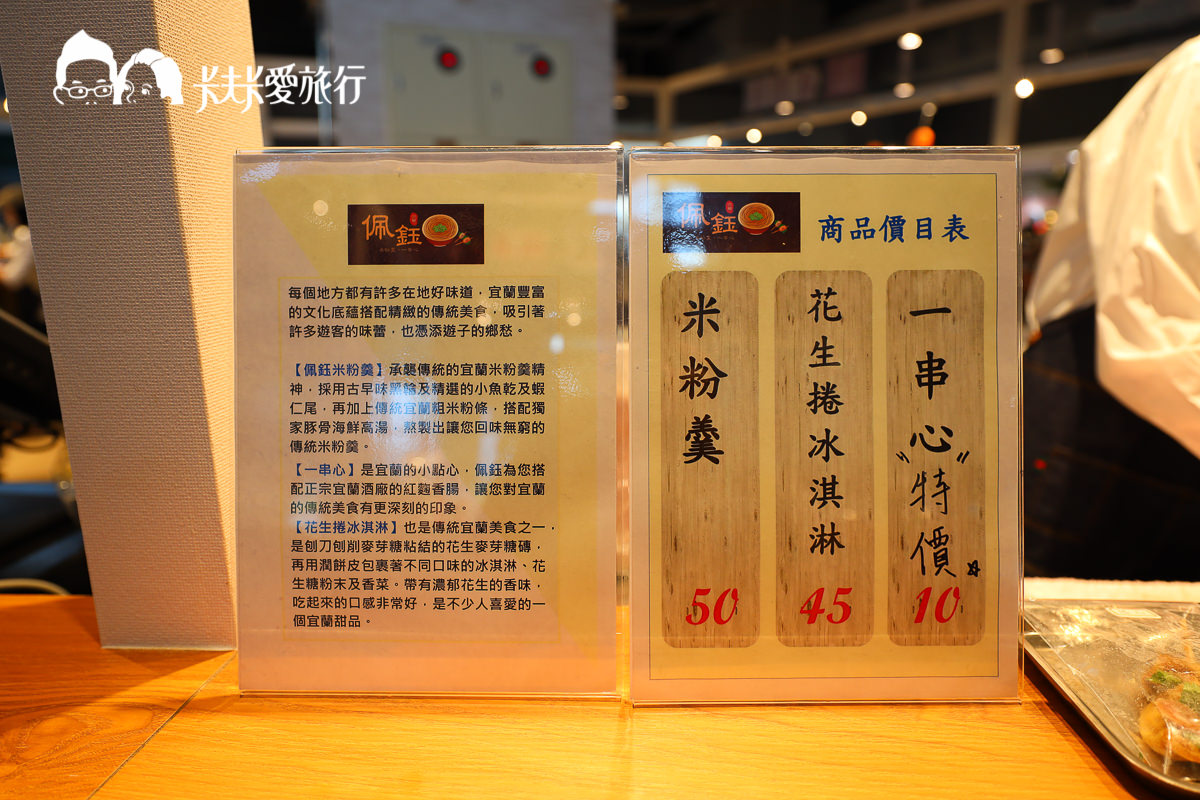 卡夫卡愛旅行
佩鈺
每個地方都有許多在地好味道，宜蘭豐富
的文化底蘊搭配精緻的傳統美食，吸引著
許多遊客的味蕾，也憑添遊子的鄉愁。
【佩鈺米粉羹】承襲傳統的宜蘭米粉羹精
神，採用古早味黑輪及精選的小魚乾及蝦
仁尾，再加上傳統宜蘭粗米粉條，搭配獨
家豚骨海鮮高湯，熬製出讓您回味無窮的
傳統米粉羹。
【一串心】是宜蘭的小點心，佩鈺為您搭
配正宗宜蘭酒廠的紅麴香腸，讓您對宜蘭
的傳統美食有更深刻的印象。
【花生捲冰淇淋】也是傳統宜蘭美食之一，
是刨刀刨削麥芽糖粘結的花生麥芽糖磚，
再用潤餅皮包裹著不同口味的冰淇淋、花
生糖粉末及香菜。帶有濃郁花生的香味，
吃起來的口感非常好，是不少人喜愛的一
個宜蘭甜品。
佩鈺
商品價目表
米粉羹
50
花生捲冰淇淋
45
一串心〝特價〞
10